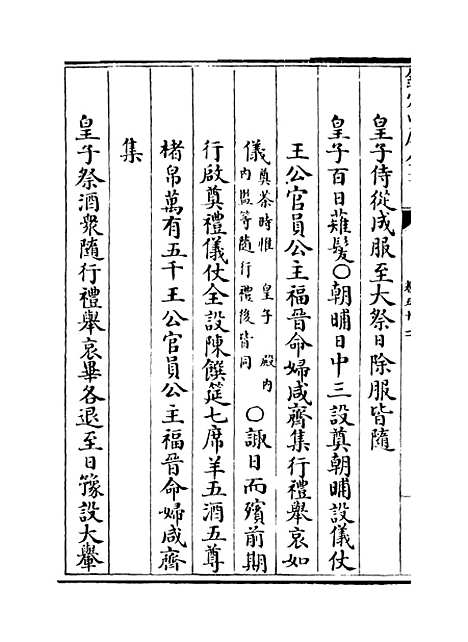 皇子侍從成服至大祭日除服皆隨
皇子百日薙髮〇朝晡日中三設奠朝晡設儀仗
王公官員公主福晉命婦咸齊集行禮舉哀如
儀奠茶時惟皇子殿內內監等隨行禮後皆同〇諏日而殯前期
行啟奠禮儀仗全設陳饌筵七席羊五酒五尊
楮帛萬有五千王公官員公主福晉命婦咸齊
集
皇子祭酒衆隨行禮舉哀畢各退至日豫設大轝